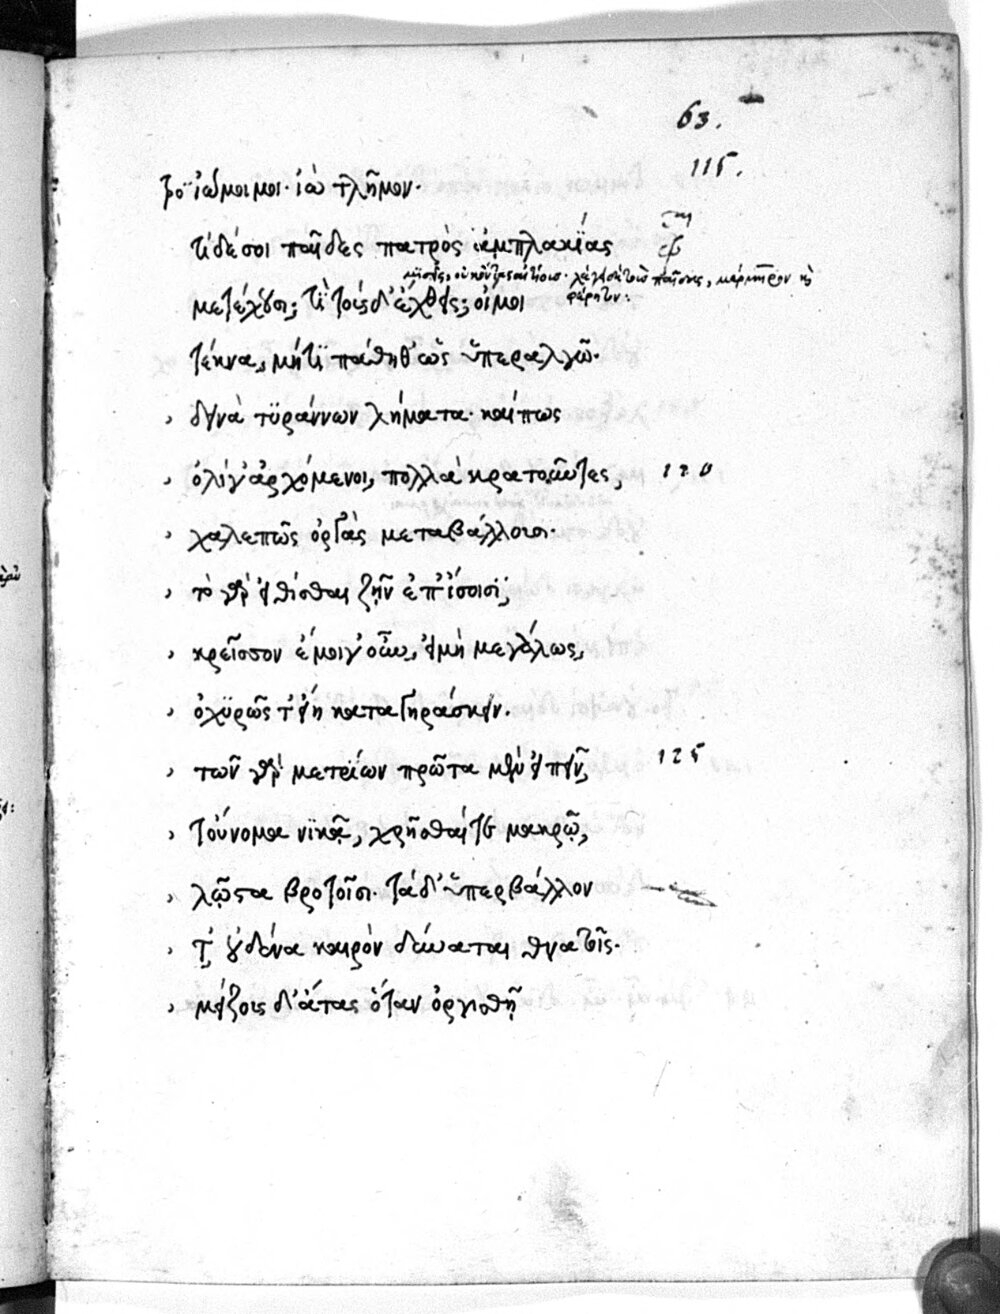 63.
115.
τρο ἰώ μοι μοι· ἰὼ τλῆμον·
τί δέ σοι παῖδες πατρὸς ἀμπλακίας
μετέχουσι; τί τούσδ' ἔχθεις; οἴμοι
τέκνα, μή τι πάθηθ' ὡς ὑπεραλγῶ·
, δεινὰ τυράννων λήματα· καί πως
, ὀλίγ' ἀρχόμενοι, πολλὰ κρατοῦντες, 120
, χαλεπῶς ὀργὰς μεταβάλλουσι·
, τὸ γὰρ εἰθίσθαι ζῆν ἐπ' ἴσοισι,
, κρεῖσσον ἐμοί γ' οὖν, εἰ μὴ μεγάλως,
, ὀχυρῶς τ' εἴη καταγηράσκειν·
, τῶν γὰρ μετρίων πρῶτα μὲν εἰπεῖν 125
, τοὔνομα νικᾷ, χρῆσθαί τε μακρῷ,
, λῷστα βροτοῖσι· τὰ δ' ὑπερβάλλον
, τ' οὐδένα καιρὸν δύναται θνατοῖς·
, μείζους δ' ἄτας ὅταν ὀργισθῇ